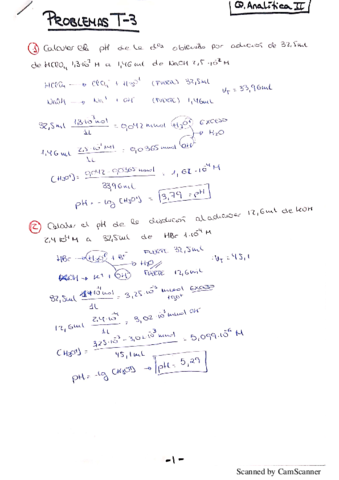 Q. Analítica II
PROBLEMAS T-3
① Calcular el pH de la dis obtenida por adicion de 32,5ml
de HClO4 1,3·10⁻³ M a 1,46 ml de NaOH 2,5·10⁻² M
HClO4 → ClO4⁻ + H3O⁺ (FUERTE) 32,5ml
NaOH → Na⁺ + OH⁻ (FUERTE) 1,46ml
VT = 33,96ml
32,5ml 1,3·10⁻³ mol / 1L = 0,042 mmol H3O⁺ EXCESO
H2O
1,46ml 2,5·10⁻² mol / 1L = 0,0365 mmol OH⁻
[H3O⁺] = 0,042 - 0,0365 mmol / 33,96ml = 1,62·10⁻⁴ M
pH = -log [H3O⁺] → 3,79 = pH
② Calcular el pH de la disolucion al adicionar 12,6ml de KOH
2,4·10⁻⁴ M a 32,5ml de HBr 1·10⁻⁴ M
HBr → H3O⁺ + Br⁻ FUERTE 32,5ml
H2O
KOH → K⁺ + OH⁻ FUERTE 12,6ml
VT = 45,1
32,5ml 1·10⁻⁴ mol / 1L = 3,25·10⁻³ mmol EXCESO H3O⁺
12,6ml 2,4·10⁻⁴ / 1L = 3,02·10⁻³ mmol OH⁻
[H3O⁺] = 3,25·10⁻³ - 3,02·10⁻³ mmol / 45,1ml = 5,099·10⁻⁶ M
pH = -log [H3O⁺] → pH = 5,29
-1-
Scanned by CamScanner